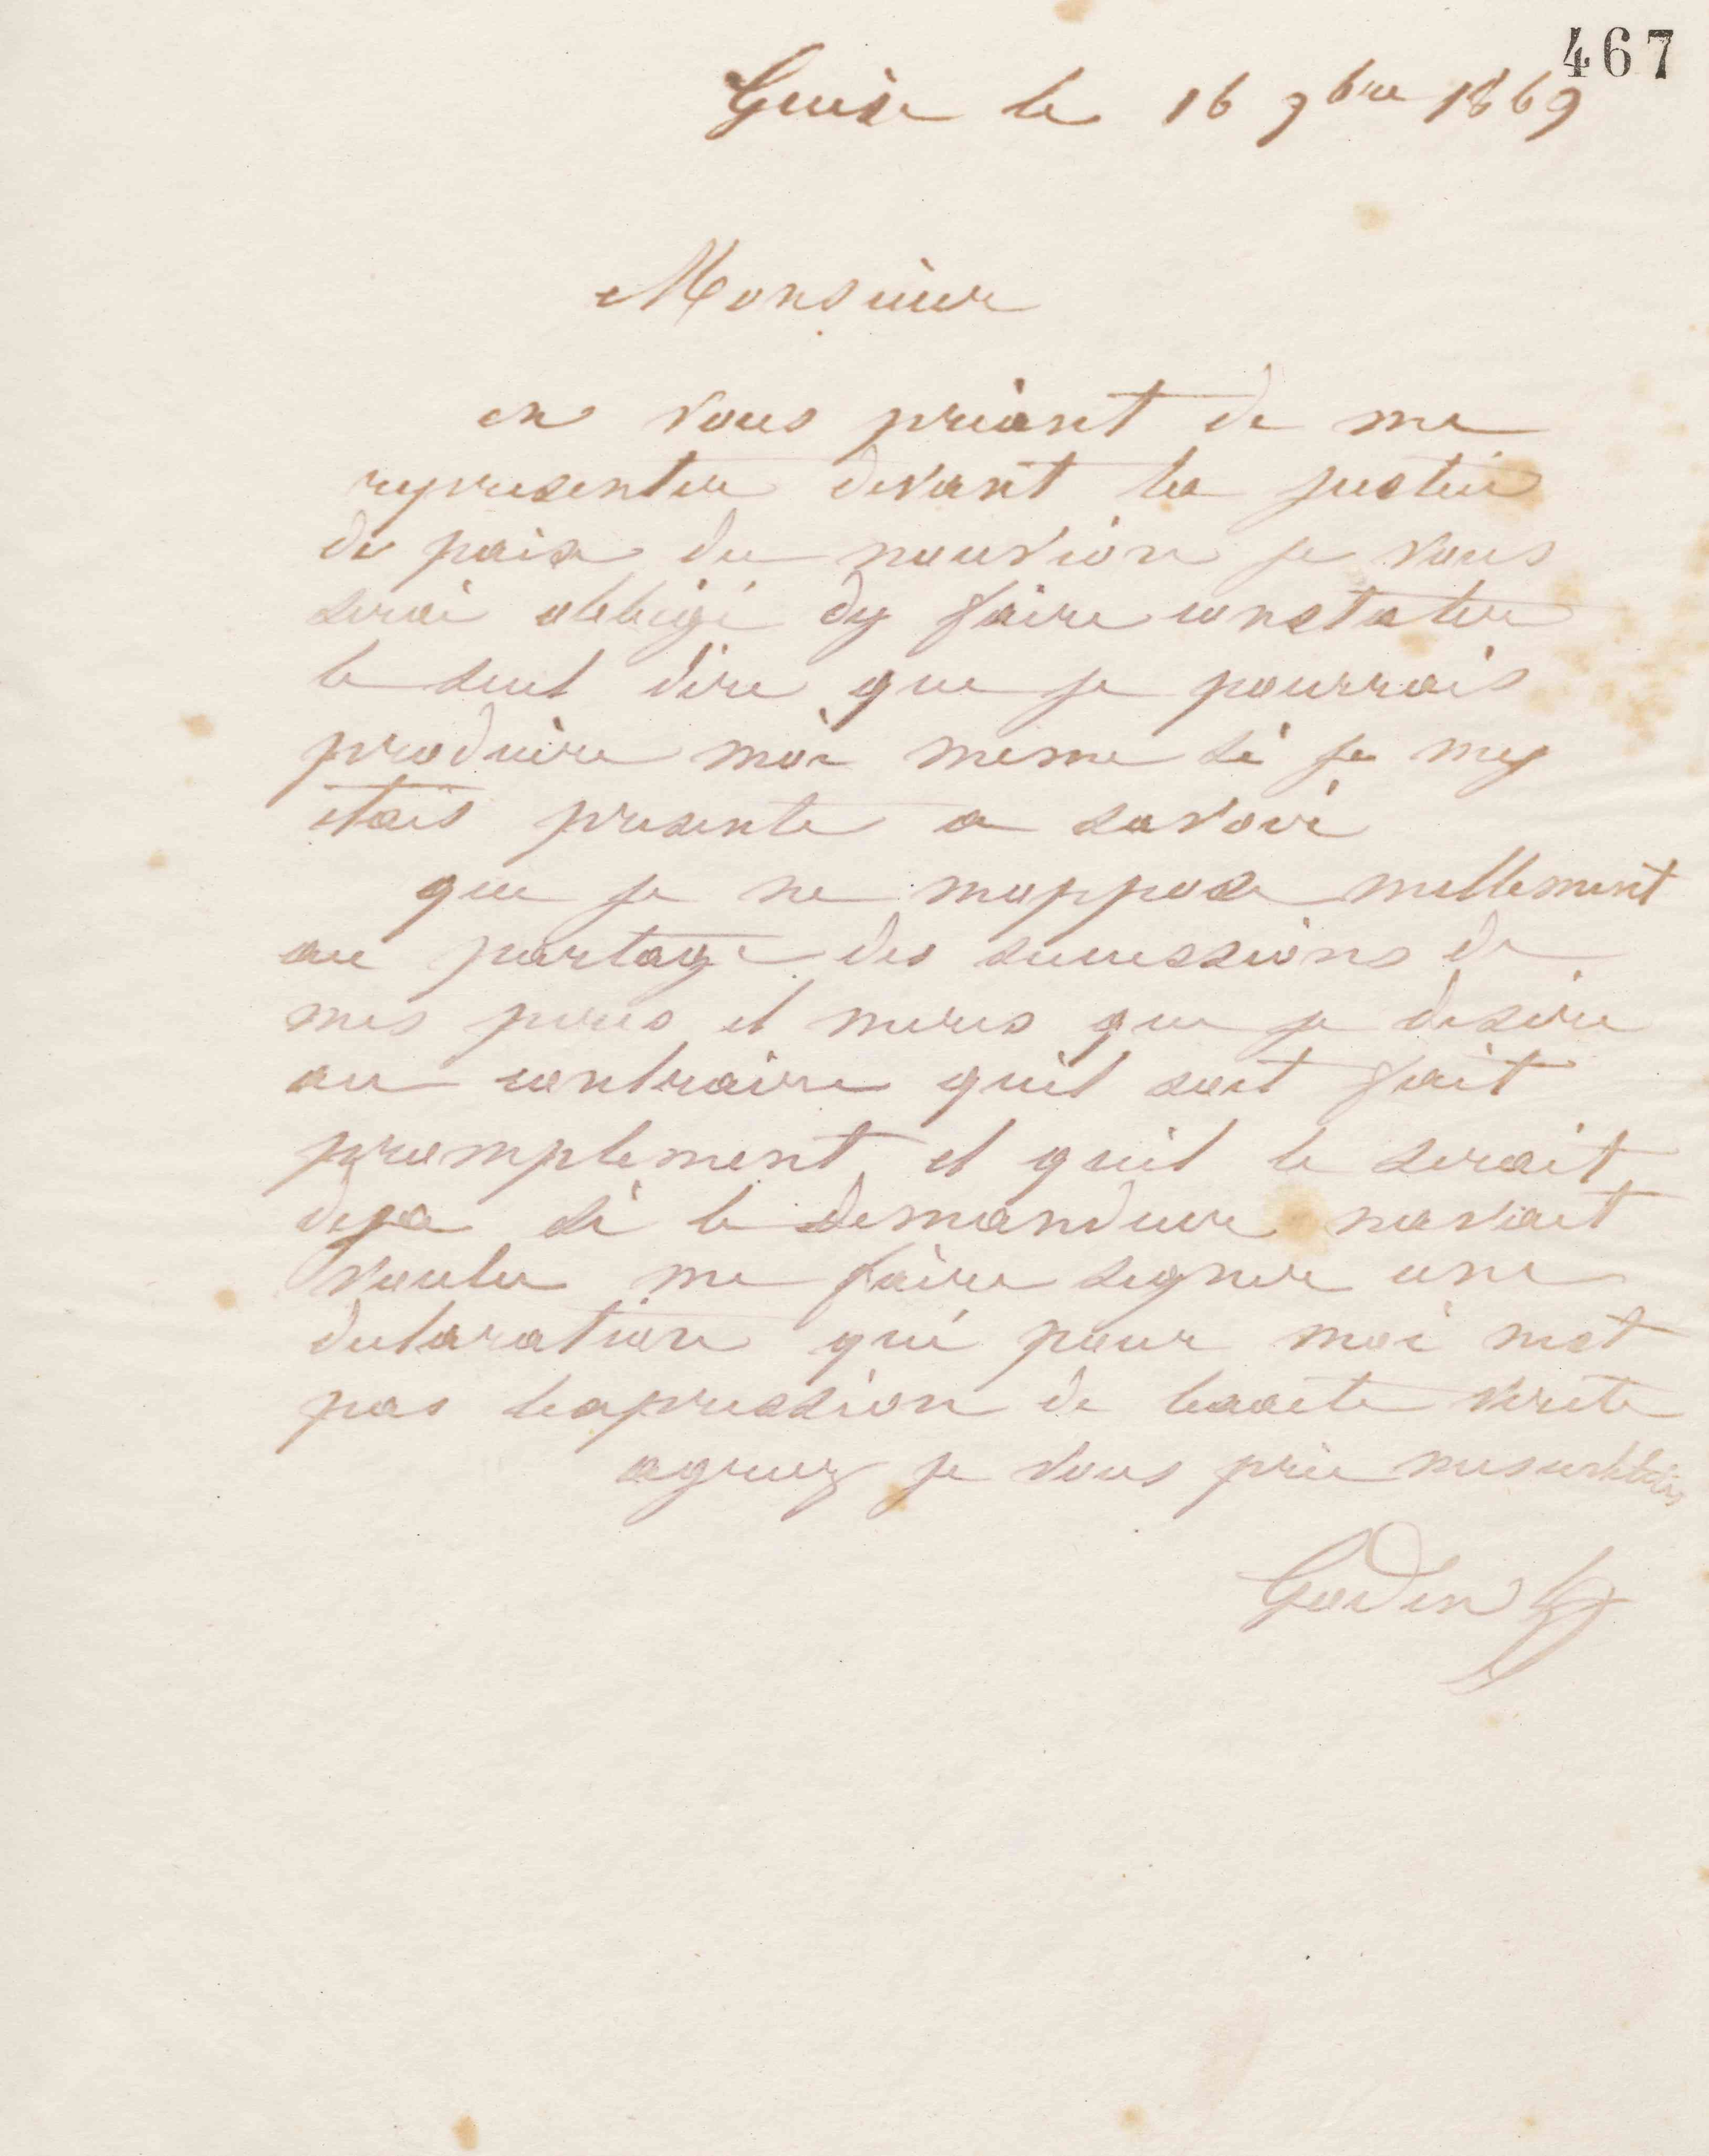 467
Guise le 16 9bre 1869
Monsieur
en vous priant de me
representer devant la justice
de paix du nouvion je vous
serai obligé dy faire constater
le seul dire que je pourrais
produire moi meme si je my
etais presente a savoir
que je ne moppose nullement
au partage des successions de
mes peres et meres que je desire
au contraire quil soit fait
promptement et quil le serait
deja si le demandeur navait
voulu me faire signer une
declaration qui pour moi nest
pas lexpression de lexacte verite
agreez je vous prie mes
Godin